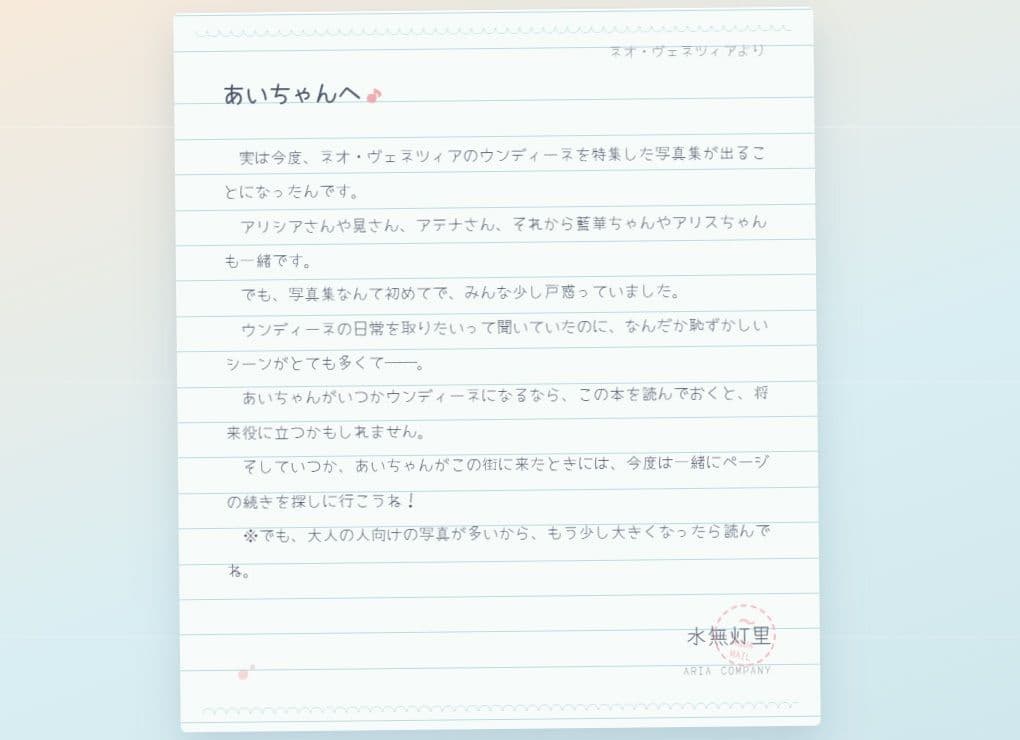 ネオ・ヴェネツィアより
あいちゃんへ
実は今度、ネオ・ヴェネツィアのウンディーネを特集した写真集が出るこ
とになったんです。
アリシアさんや晃さん、アテナさん、それから藍華ちゃんやアリスちゃん
も一緒です。
でも、写真集なんて初めてで、みんな少し戸惑っていました。
ウンディーネの日常を取りたいって聞いていたのに、なんだか恥ずかしい
シーンがとても多くて――。
あいちゃんがいつかウンディーネになるなら、この本を読んでおくと、将
来役に立つかもしれません。
そしていつか、あいちゃんがこの街に来たときには、今度は一緒にページ
の続きを探しに行こうね！
※でも、大人の人向けの写真が多いから、もう少し大きくなったら読んで
ね。
水無灯里
MAIL
ARIA COMPANY